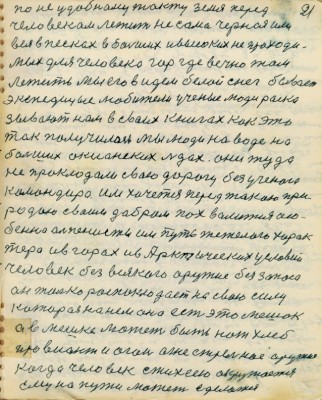 21
по не удобному такту земя перед
человекам летит не сама черная или
вся в песках в болших и высоких не проходи-
мых для человека гор где вечно там
лежить мы его видем белой снег бывает
экспедицые любители ученые люди расказ
зывают нам в своих книгах как это
так получилось мы люди на воде на
болших океанских лодах. они туда
не прокладали сваю дорогу без ученого
командира. им хочется перед такою при-
родаю сваим дабром пох валится осо-
бенно алпенисты им путь тежелого харак
тера и в горах и в Арктических условий
человек без всякого оружие без запаса
он толко располкладает на сваю силу
катарая на нем она ест это мешок
а в мешке может быть нот хлеб
правиант и огон огнестрелное оружие
когда человек стихсею окружается
ему на пути может сделатся